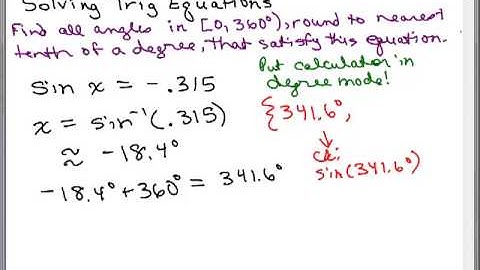 Solving Trig Equations
Find all angles in [0, 360°), round to nearest
tenth of a degree, that satisfy this equation.
sin x = -.315
Put calculator in
degree mode!
x = sin⁻¹(.315)
{341.6°,
≈ -18.4°
ck:
sin(341.6°)
-18.4° + 360° = 341.6°